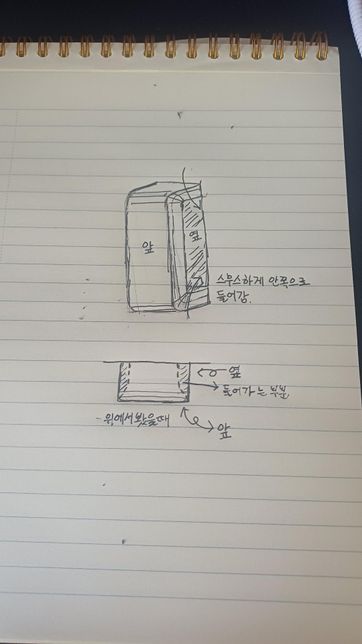 앞
옆
스무스하게 안쪽으로
들어감.
옆
들어가는 부분
-위에서 봤을때
앞